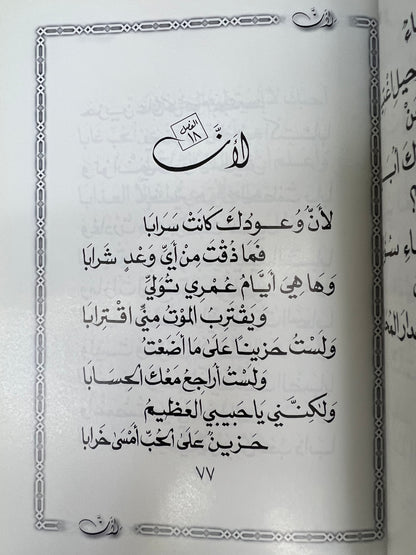 لأنَّ
الفصل
١٨
لأنَّ
لأنَّ وُعودكَ كانَتْ سَرابا
فَمَا ذُقْتُ مِنْ أَيِّ وَعْدٍ شَرابَا
وَهَا هِيَ أَيَّامُ عُمْرِي تُوَلِّي
وَيَقْتَرِبُ المَوْتُ مِنِّي اقْتِرابَا
وَلَسْتُ حَزينًا عَلَى مَا أَضَعْتُ
وَلَسْتُ أُرَاجِعُ مَعْكَ الحِسَابَا
وَلَكِنَّنِي يَا حَبيبِي العَظِيمُ
حَزِينٌ عَلَى الحُبِّ أَمْسَى خَرابَا
٧٧
لأنَّ